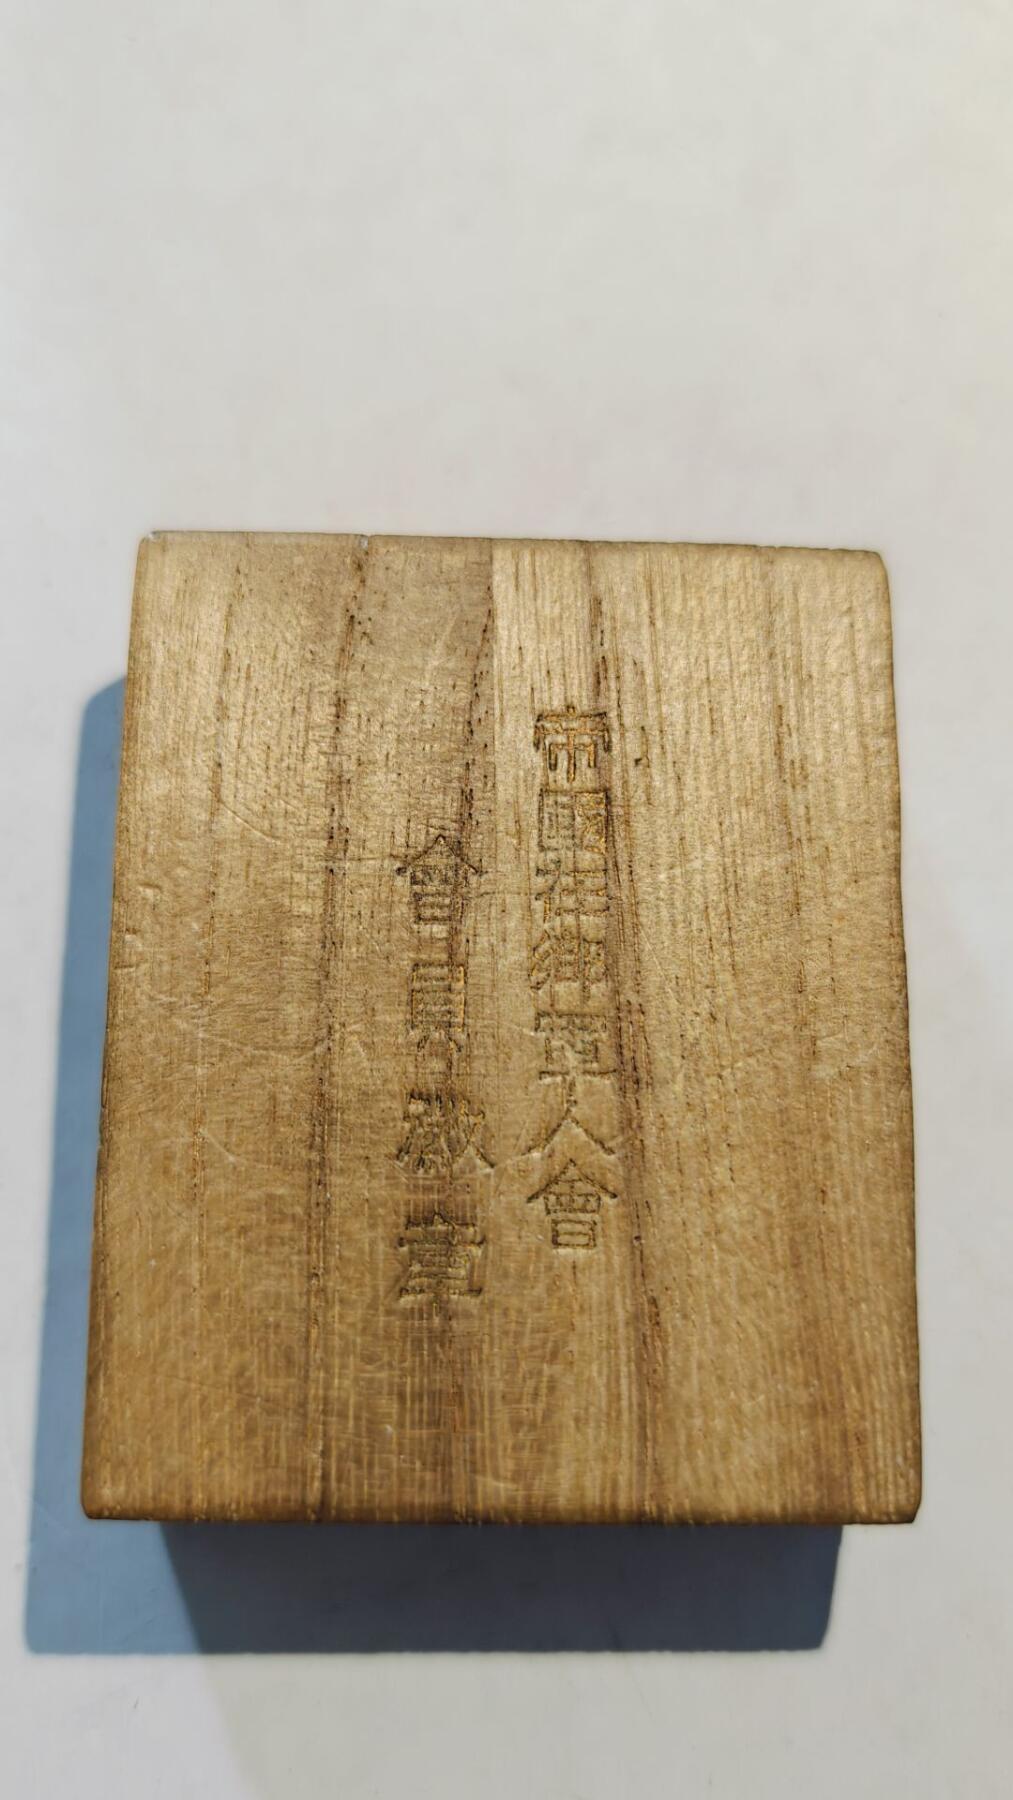 帝國在郷軍人會
會員徽章